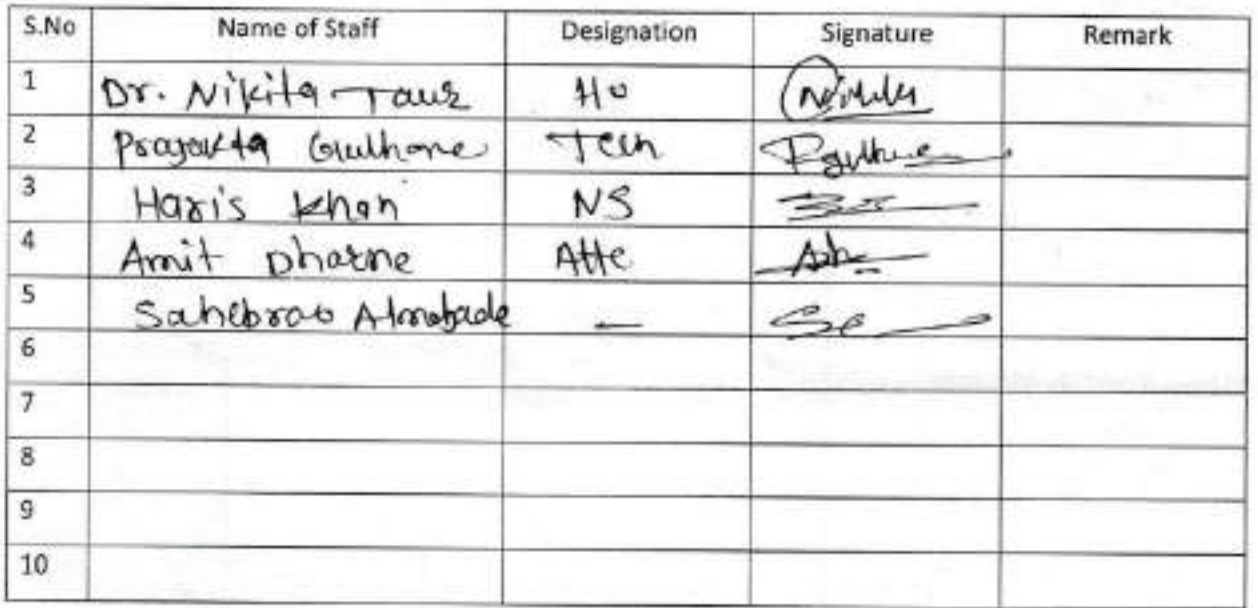 S.No Name of Staff Designation Signature Remark
1 Dr. Nikita Taur HO
2 Prajakta Gulhane Tech Pgulhane
3 Haris Khan NS
4 Amit Dharne Atte
5 Sahebrao —
6
7
8
9
10